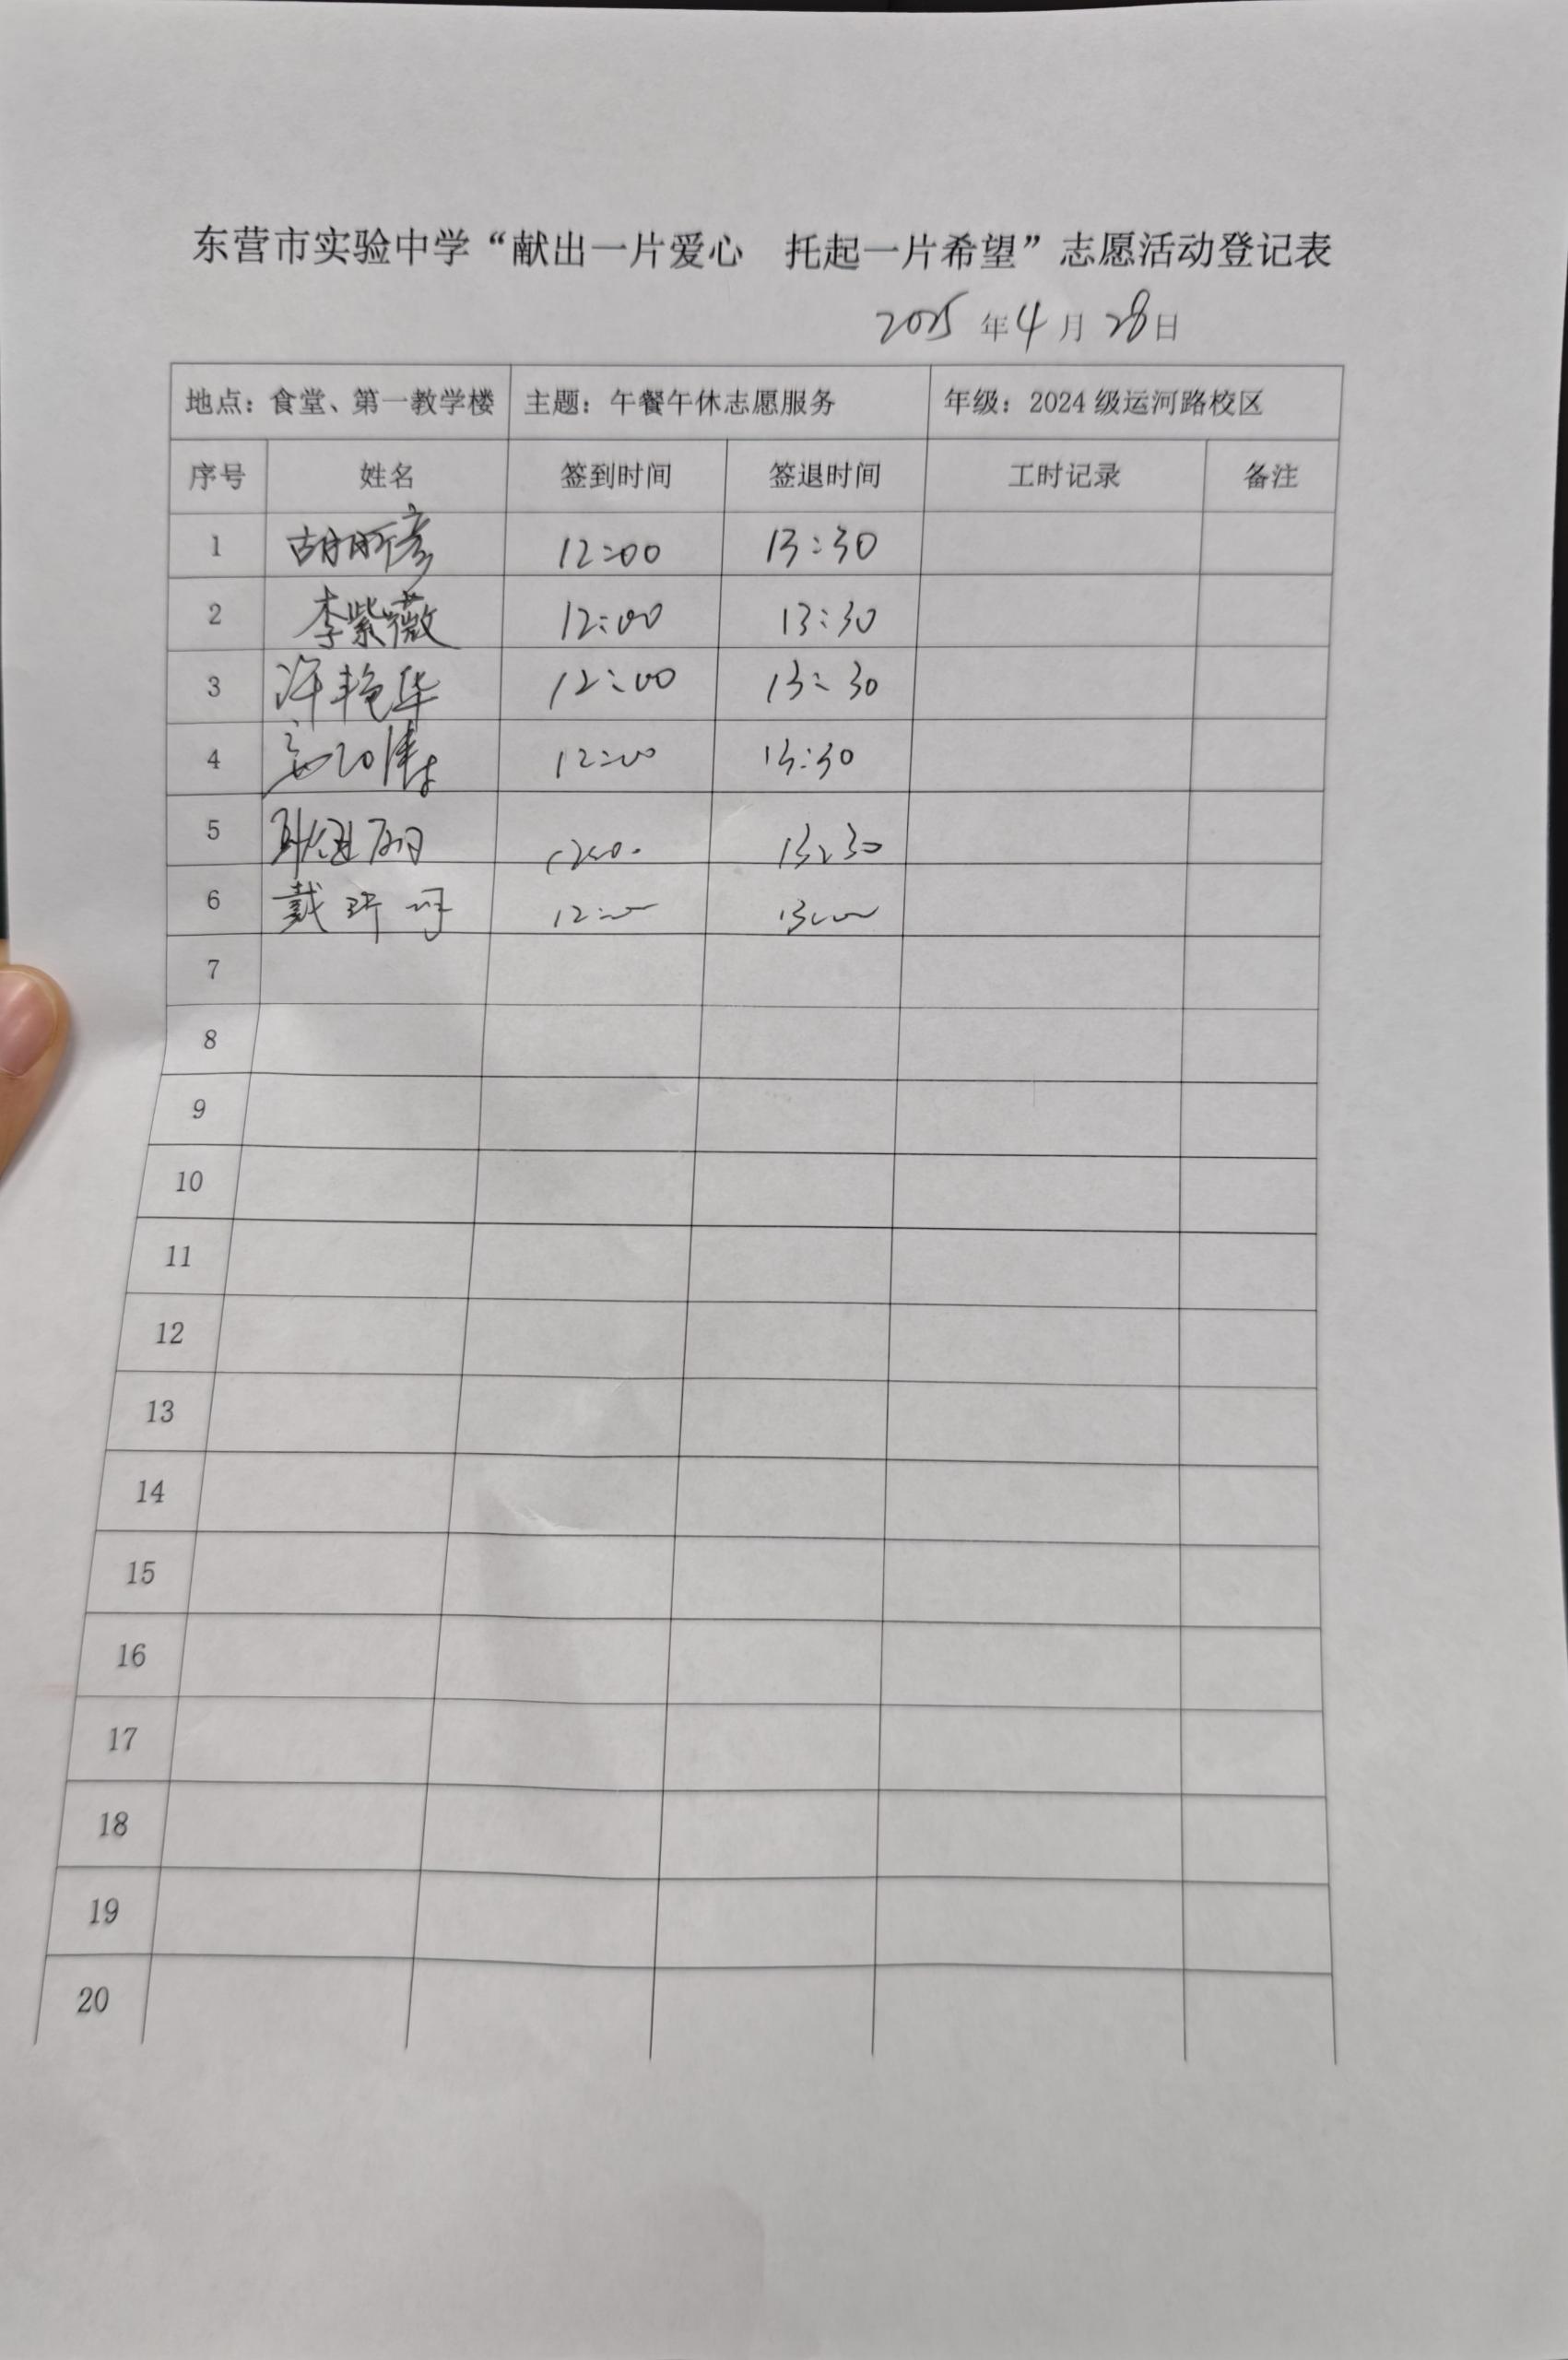 东营市实验中学“献出一片爱心 托起一片希望”志愿活动登记表
2025 年 4 月 28 日
地点：食堂、第一教学楼 主题：午餐午休志愿服务 年级：2024 级运河路校区
序号 姓名 签到时间 签退时间 工时记录 备注
1 胡昕彦 12:00 13:30
2 李紫薇 12:00 13:30
3 许艳华 12:00 13:30
4 12:00 13:30
5 12:00 13:30
6 戴 12:00
7
8
9
10
11
12
13
14
15
16
17
18
19
20